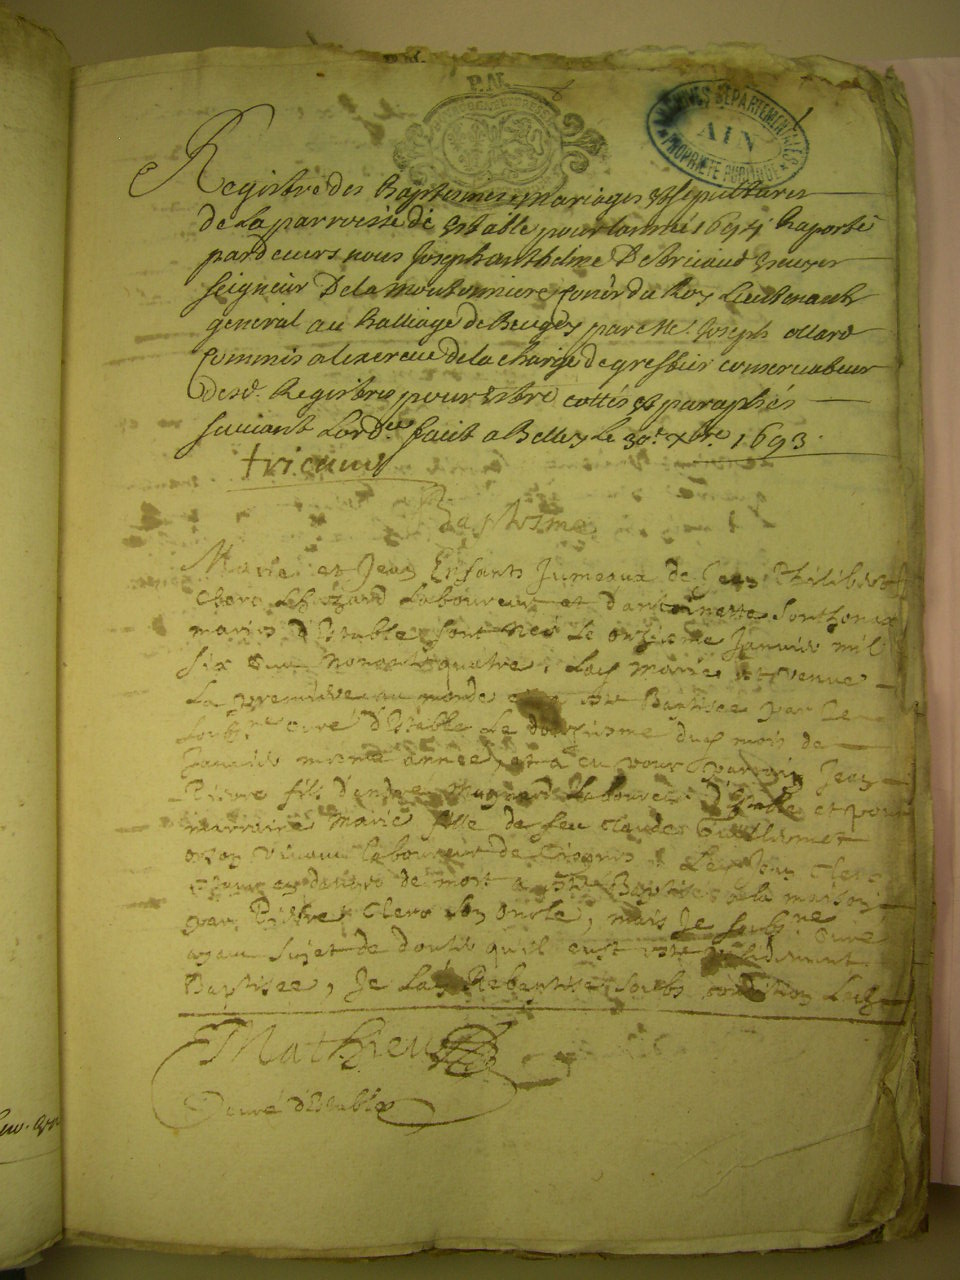 P.M.
ARCHIVES DEPARTEMENTALES
AIN
PROPRIETE PUBLIQUE
Registre des Baptesmes mariages et sepultures
de la parroisse de Estable pour lannée 1694 Raporté
pardevers nous Joseph anthelme De tricaud Escuyer
seigneur De la moutonniere Con.er du Roy Lieutenant
general au Balliage de Beugey par Me. Joseph ollard
Commis a lexercice de la charge de greffier conservateur
desd. Registres pour Estre cottés et paraphés
suivant Lord.ce faict a Belley Le 30.e xbre 1693
tricaud
Baptesme
Marie et Jean Enfants Jumeaux de Jean Philibert
Clerc Laboureur et dantoinette
mariés d'Estable sont néz Le onzieme Janvier mil
six cent nonante quatre, Lad marie est venue
La premiere au monde et a esté Baptisée par Je
soubs.né curé d'Estable Le douzieme dud mois de
Janvier mesme année, et a eu pour parrain Jean
Pierre fils d'andré Laboureur d'Estable et pour
marraine Marie fille de feu Claude Guillermet
vivant laboureur de
en danger de mort a esté Baptisé a la maison
par Pierre Clerc son oncle, mais Je soubs.né Curé
ayant sujet de douter qu'il eust esté validement
Baptisée, Je Lay Rebaptisé soubs condition
Mathieu
curé d'Estable